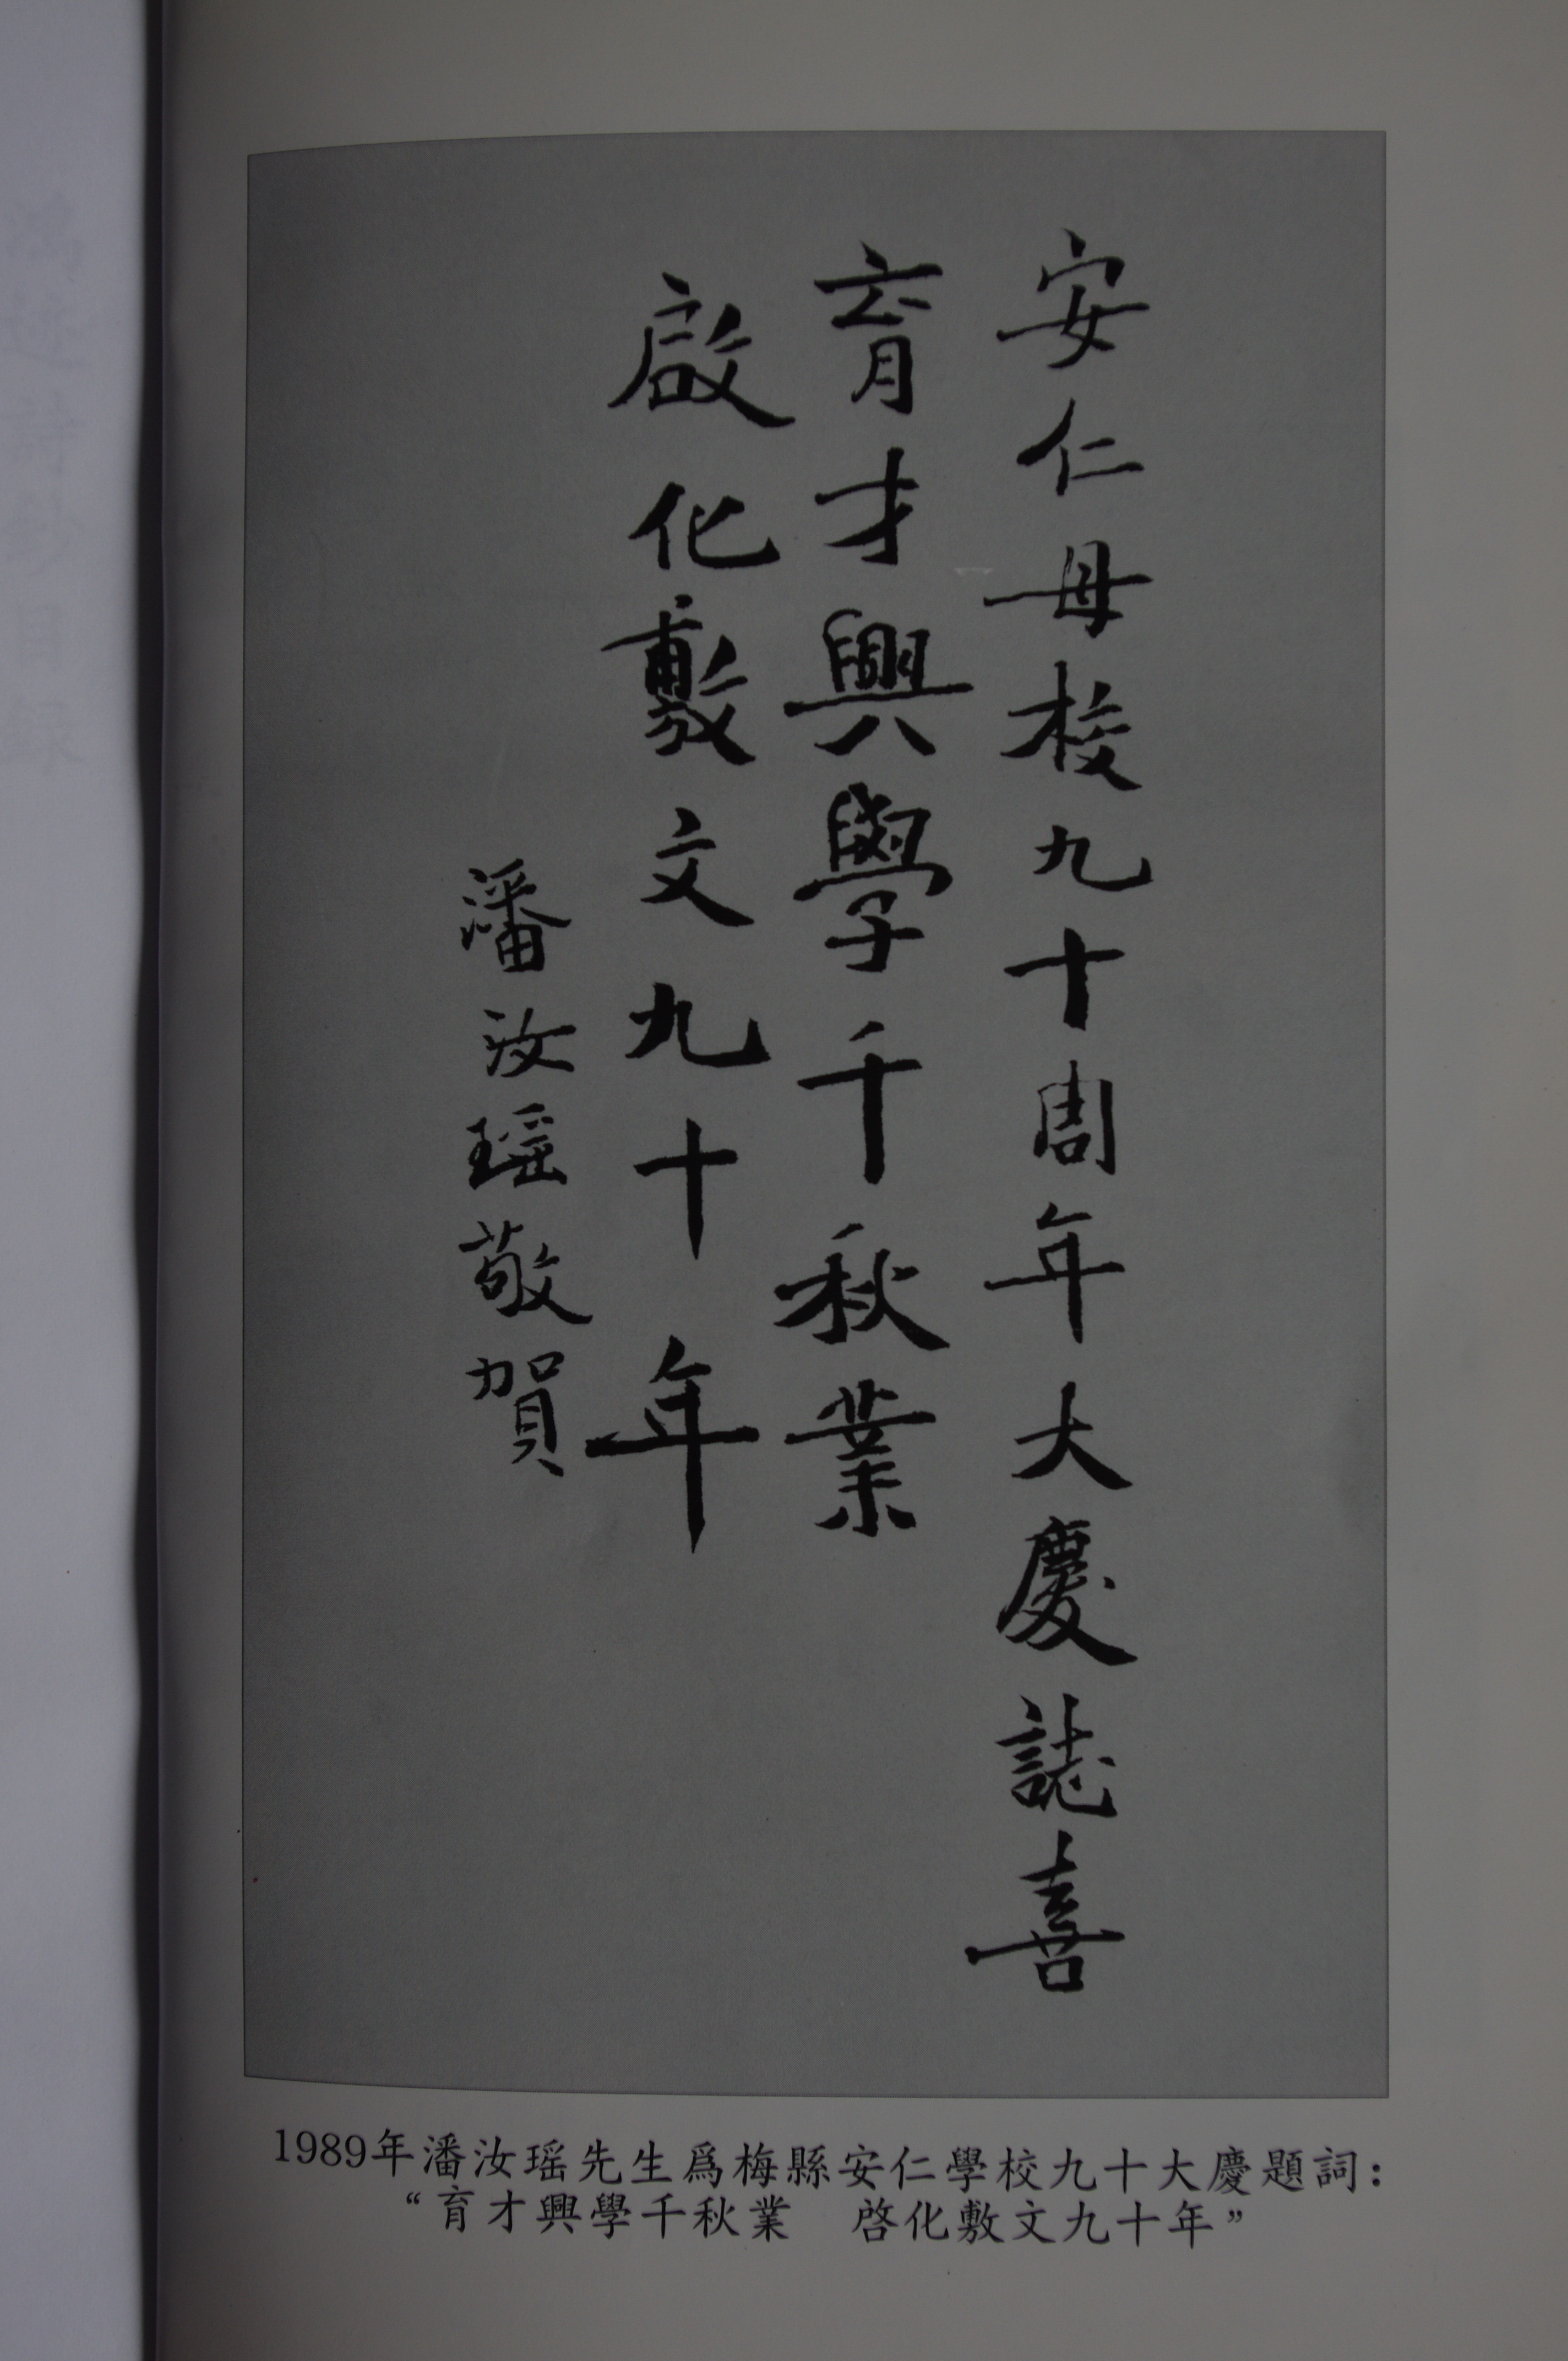 安仁母校九十周年大慶誌喜
育才興學千秋業
啟化敷文九十年
潘汝瑶敬賀
1989年潘汝瑶先生爲梅縣安仁學校九十大慶題詞：
“育才興學千秋業　啓化敷文九十年”